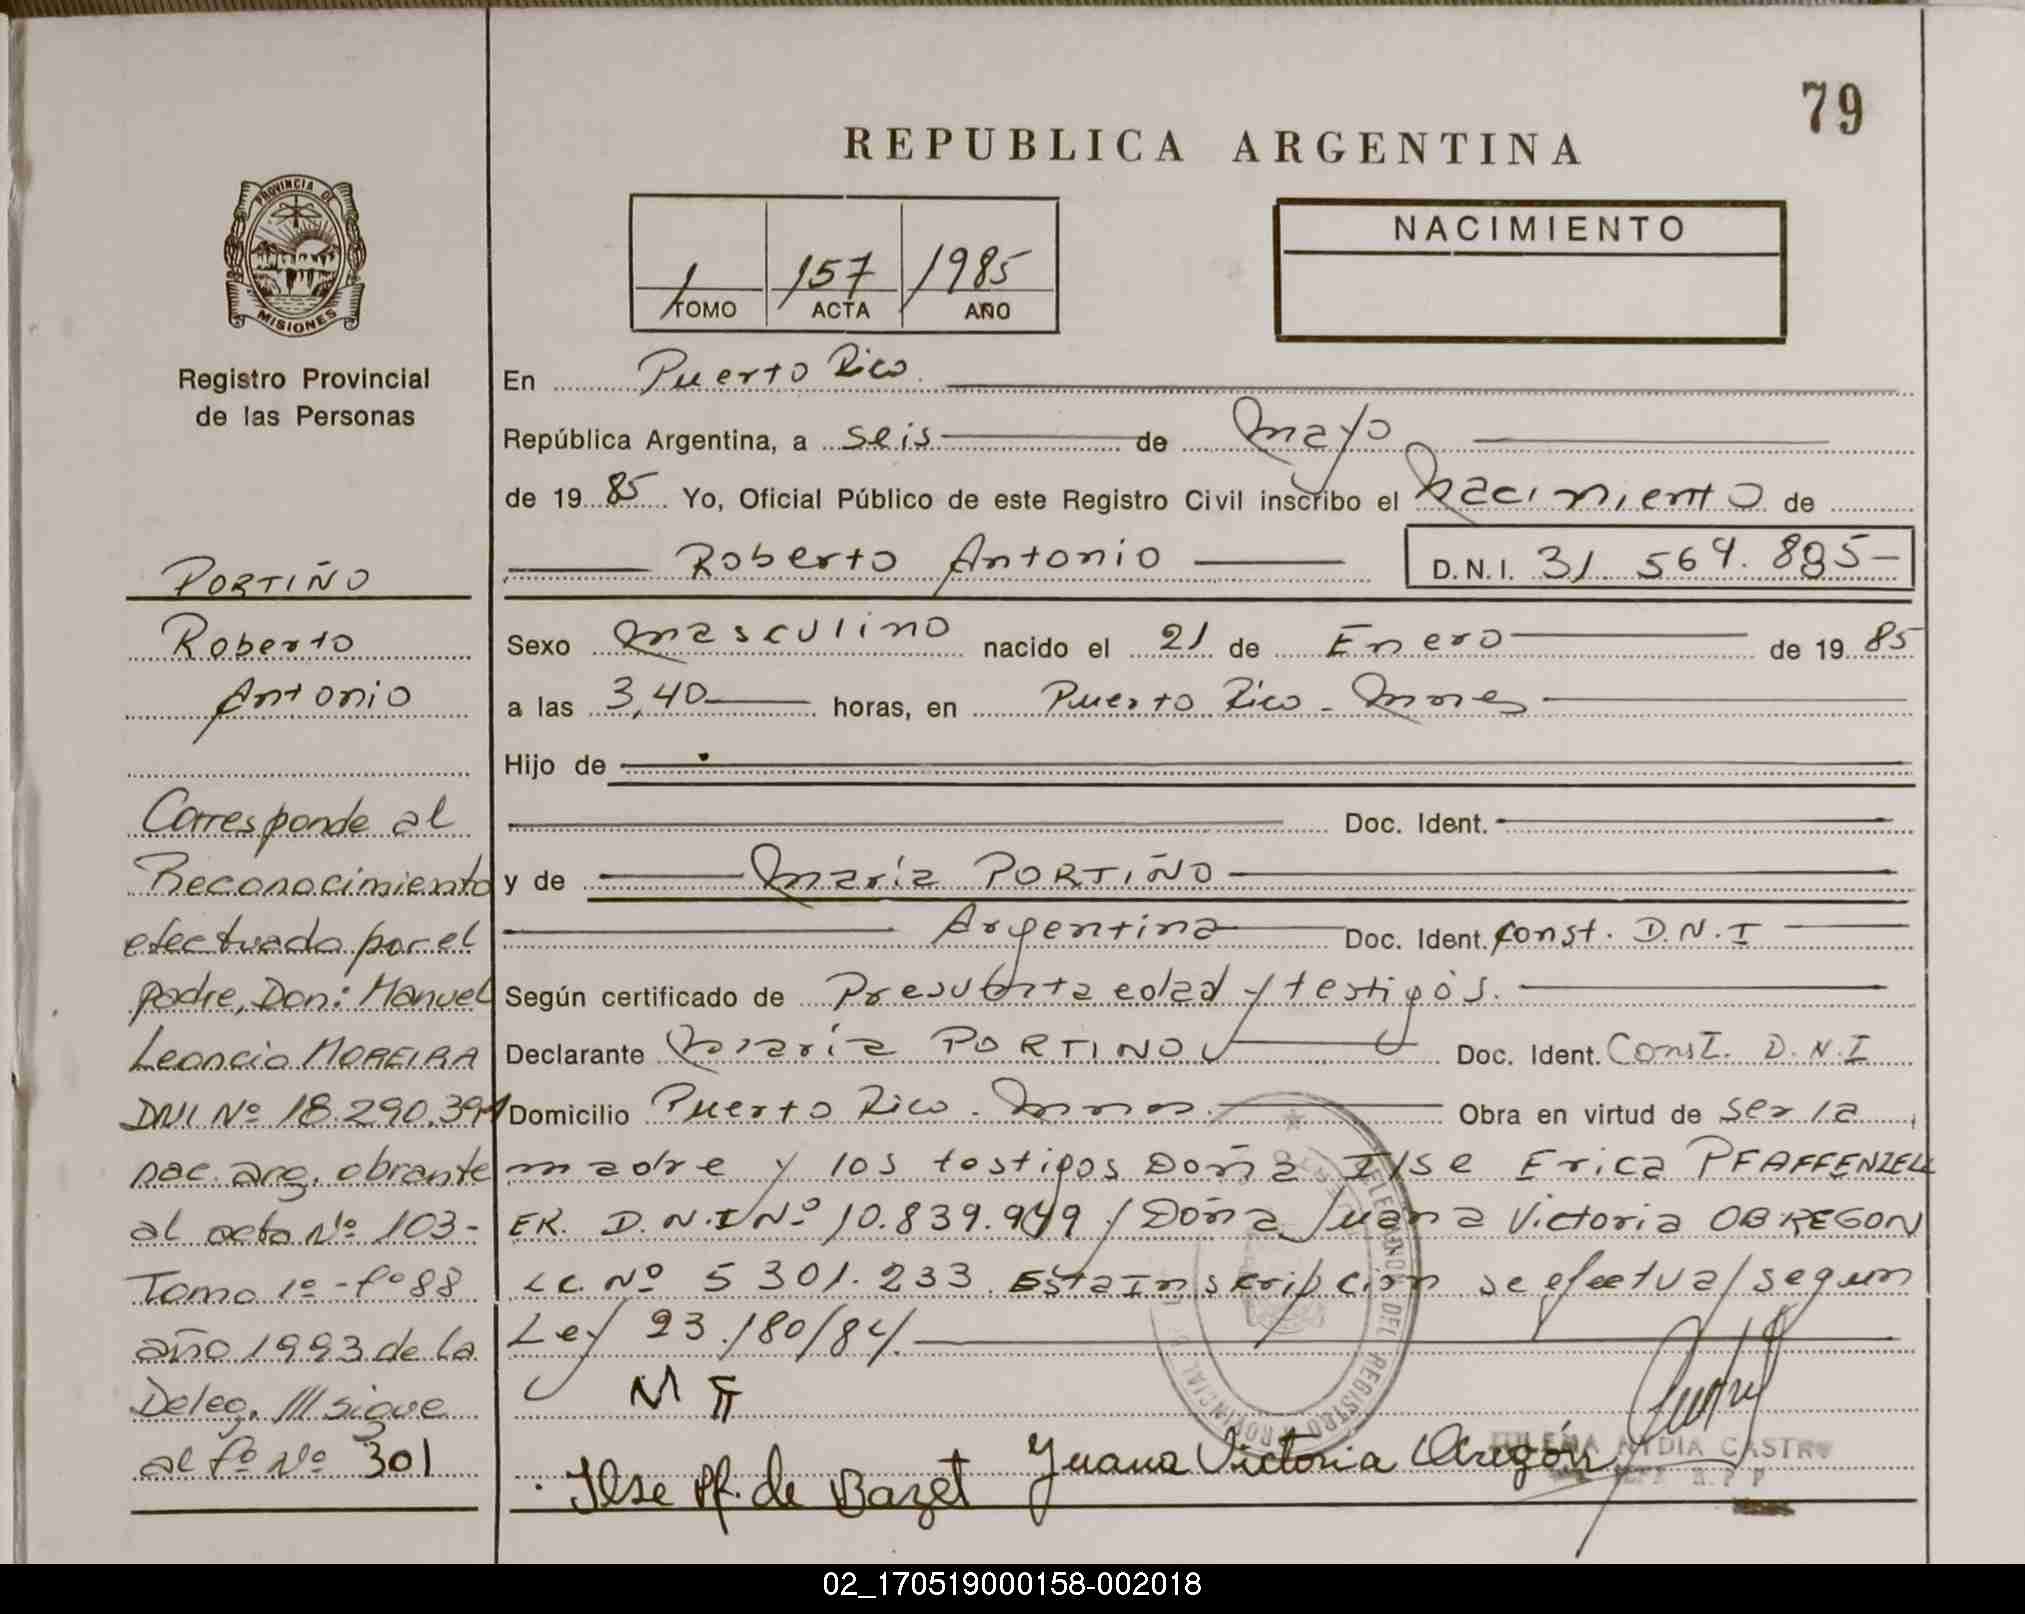 79
REPUBLICA ARGENTINA
PROVINCIA DE
MISIONES
Registro Provincial
de las Personas
1 157 1985
TOMO ACTA AÑO
NACIMIENTO
En Puerto Rico
República Argentina, a seis de Mayo
de 1985 Yo, Oficial Público de este Registro Civil inscribo el Nacimiento de
Roberto Antonio D.N.I. 31 564.885-
Sexo Masculino nacido el 21 de Enero de 1985
a las 3,40 horas, en Puerto Rico - Mnes
Hijo de
Doc. Ident.
y de María PORTIÑO
Argentina Doc. Ident. Const. D.N.I
Según certificado de Presunta edad y testigos.
Declarante María PORTINO Doc. Ident. Const. D.N.I
Domicilio Puerto Rico - Mnes. Obra en virtud de ser la
madre y los testigos Doña Ilse Erica PFAFFENZELL
ER. D.N.I Nº 10.839.949 / Doña Juana Victoria OBREGON
LC. Nº 5 301.233 Esta Inscripción se efectua / segun
Ley 23.180/84.
Ilse Pf. de Bazet Juana Victoria Obregón
NYDIA CASTRO
PORTIÑO
Roberto
Antonio
Corresponde al
Reconocimiento
efectuado por el
padre, Don: Manuel
Leoncio MOREIRA
DNI Nº 18.290.391
nac. arg. obrante
al acta Nº 103-
Tomo 1º - fº 88
año 1993 de la
Deleg. /// sigue
al fº Nº 301
02_170519000158-002018